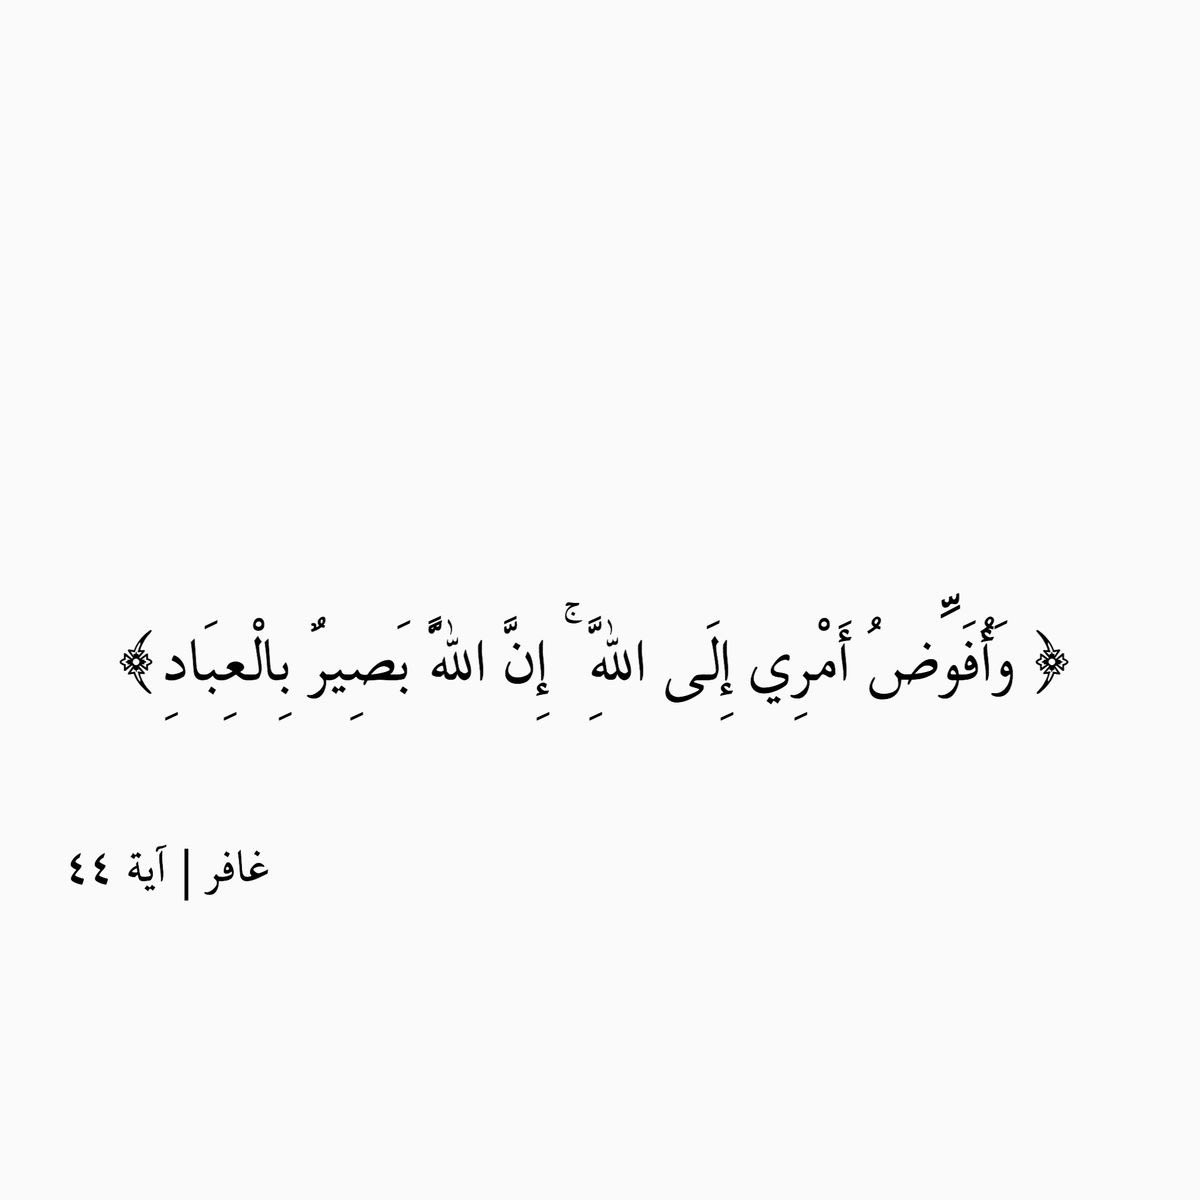 ﴿ وَأُفَوِّضُ أَمْرِي إِلَى اللَّهِ ۚ إِنَّ اللَّهَ بَصِيرٌ بِالْعِبَادِ ﴾
غافر | آية ٤٤